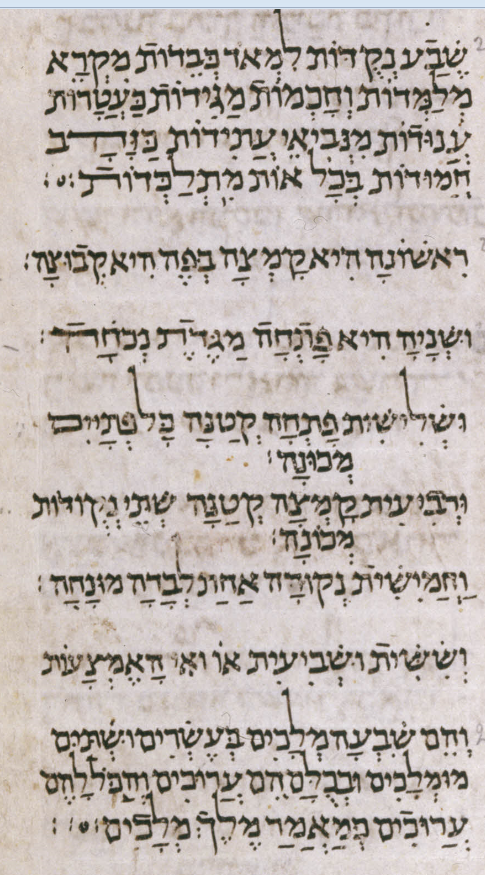 שבע נקדות למאד כבדות מקרא
מלמדות וחכמות מגידות כעטרות
ענודות מנביאי עתידות כנדב
חמודות בכל אות מתלכדות׃
ראשונה היא קמצה בפה היא קבוצה׃
ושניה היא פתחה מגדרת נכחרת׃
ושלישית פתחה קטנה כל פתיים
מכונה׃
ורביעית קמצה קטנה שתי נקודות
מכונה׃
וחמישית נקודה אחת לבדה מונחה׃
וששית ושביעית או ואי האמצעות
והם שבעה מלכים בעשרים ושתים
מומלכים ובכלם הם ערוכים וחפללהם
ערוכים כמאמר מלך מלכים׃